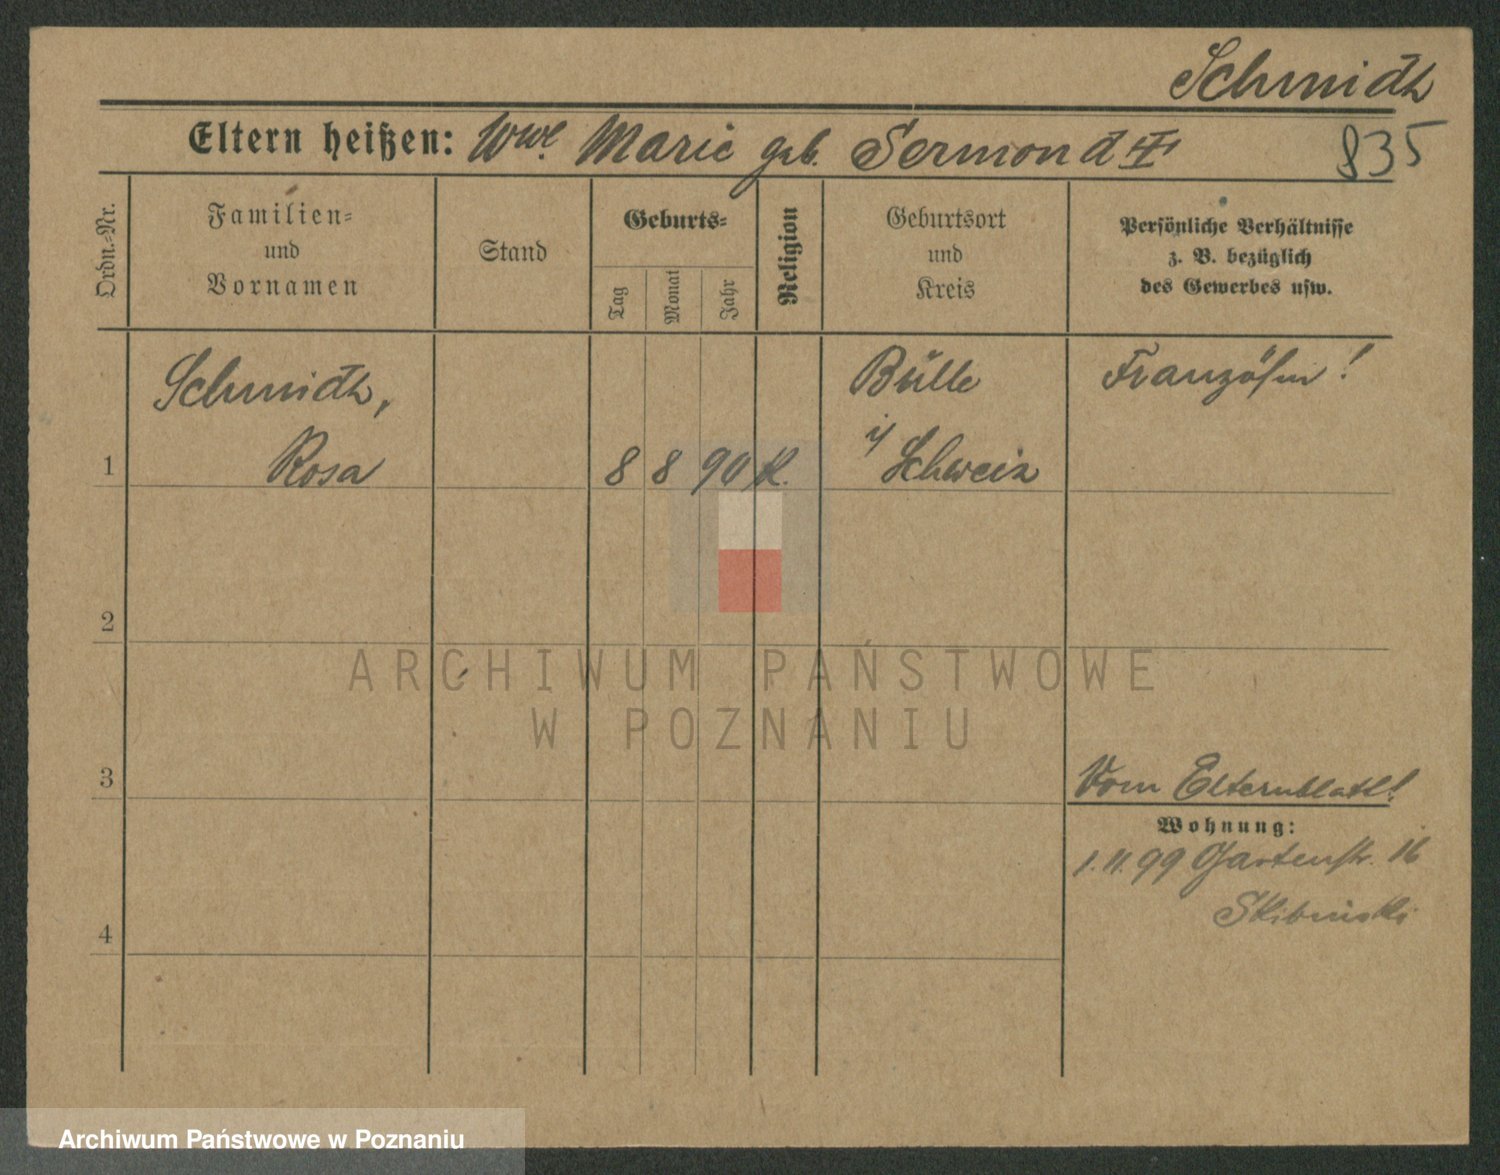 Schmidt
Eltern heißen: Wwe. Marie geb. Sermond
835
Ordn.-Nr.
Familien-
und
Vornamen
Stand
Geburts-
Tag
Monat
Jahr
Religion
Geburtsort
und
Kreis
Persönliche Verhältnisse
z. B. bezüglich
des Gewerbes usw.
Schmidt,
Rosa
1
8 8 90 k.
Bülle
i/ Schweiz
Französin!
2
ARCHIWUM PAŃSTWOWE
W POZNANIU
3
Vom Elternblatt!
Wohnung:
1. 11. 99 Gartenstr. 16
Skibinski
4
Archiwum Państwowe w Poznaniu